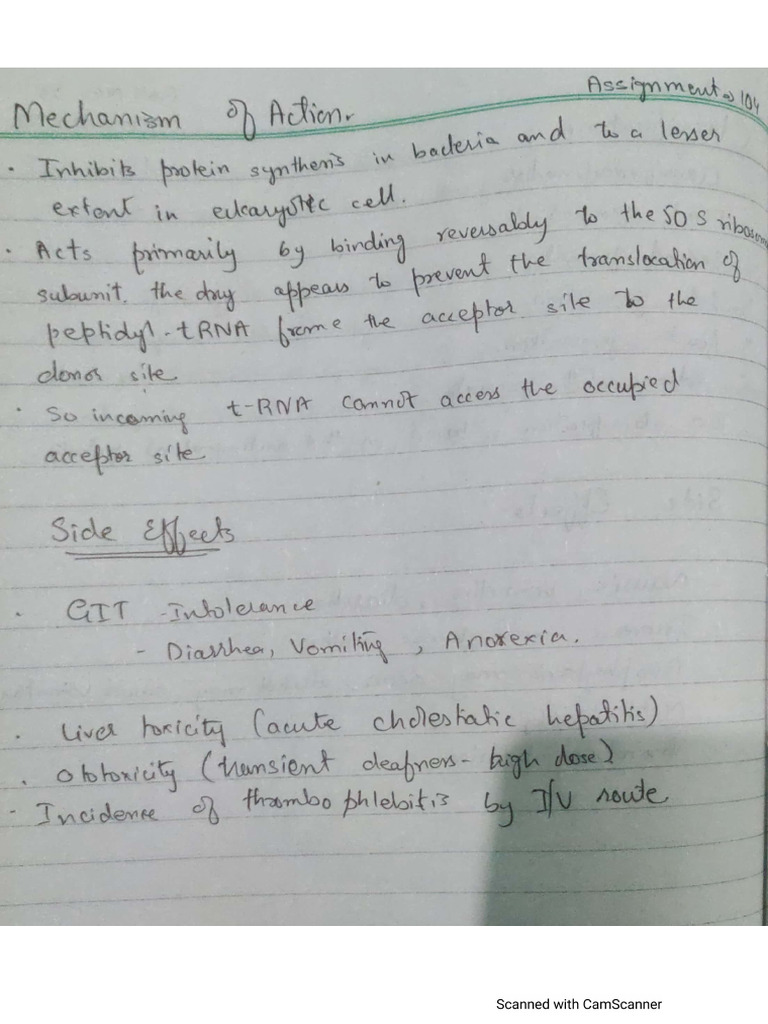 Assignment → 104
Mechanism of Action.
• Inhibits protein synthesis in bacteria and to a lesser
extent in eukaryotic cell.
• Acts primarily by binding reversably to the 50 S ribosome
subunit. the drug appears to prevent the translocation of
peptidyl-tRNA frome the acceptor site to the
donor site
• So incoming t-RNA cannot access the occupied
acceptor site.
Side Effects
• GIT - Intolerance
- Diarrhea, Vomiting, Anorexia.
• Liver toxicity (acute cholestatic hepatitis)
• Ototoxicity (transient deafness - high dose)
- Incidence of thrombophlebitis by I/V route
Scanned with CamScanner